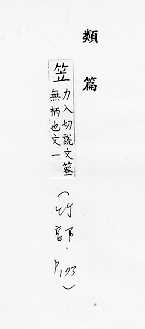 類篇
笠 力入切說文簦
無柄也文一
(竹部·P.193)